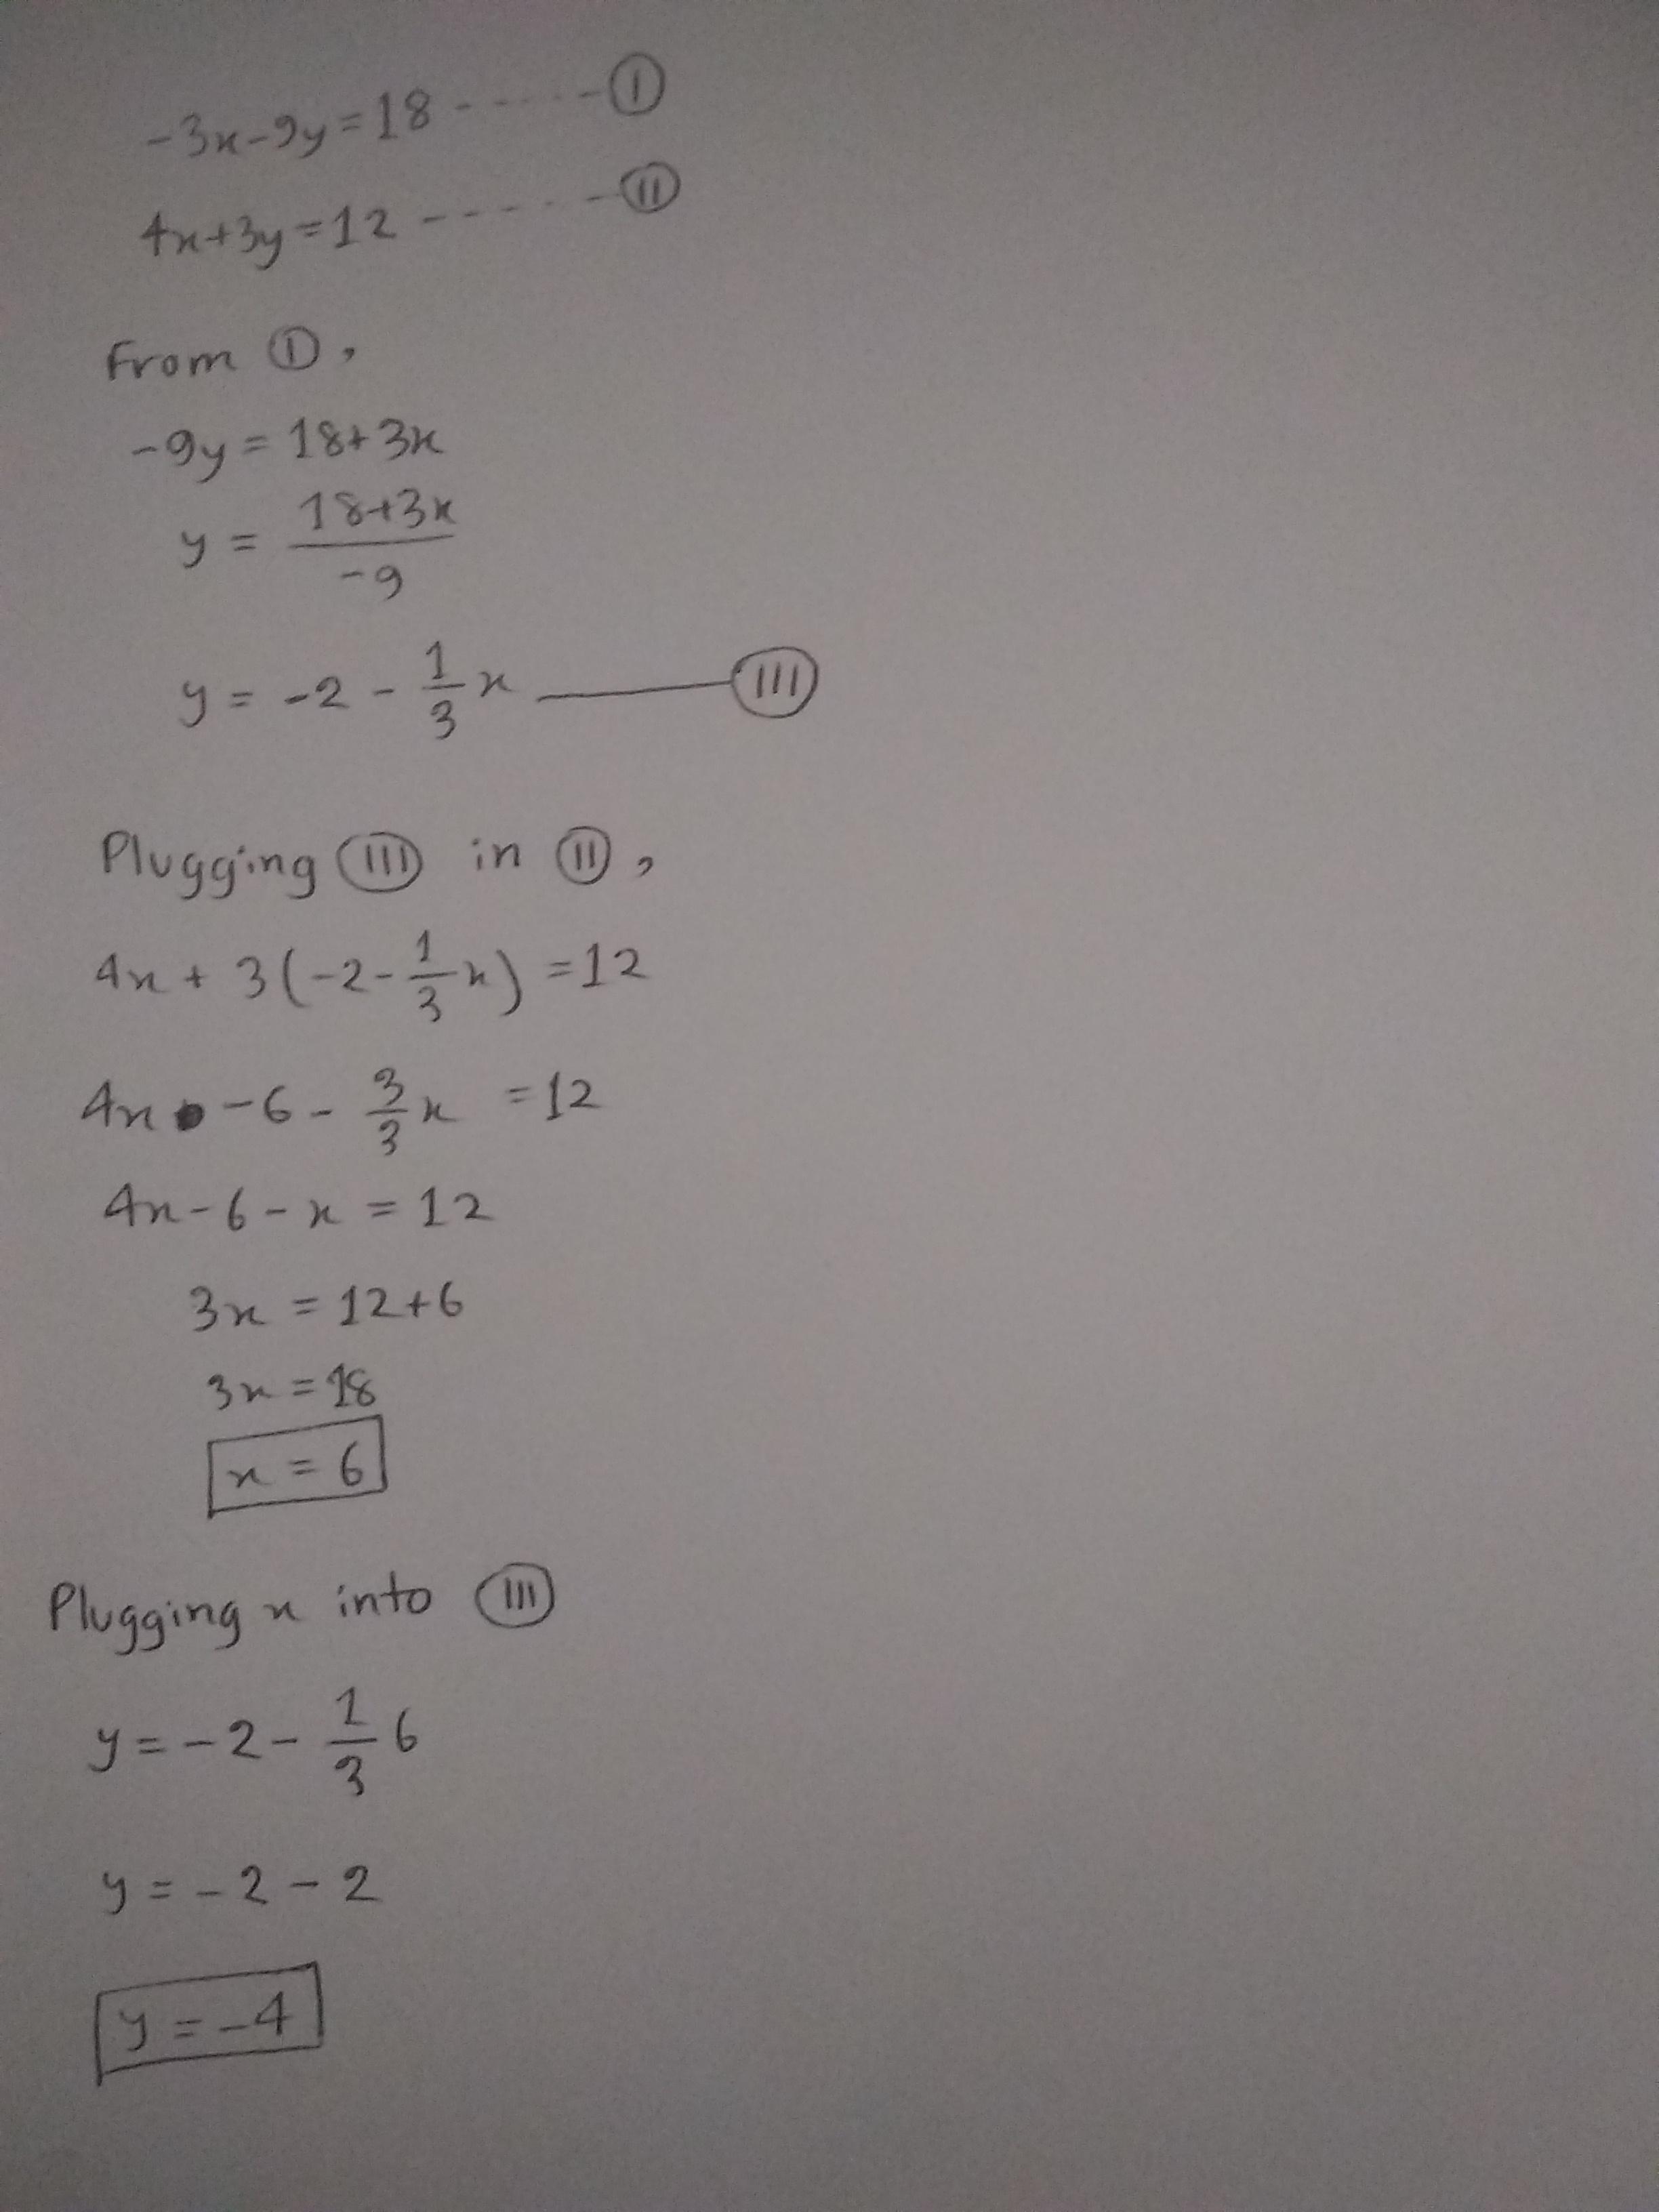 -3x-9y=18 ------ⓘ
4x+3y=12 ------(II)
From ⓘ,
-9y = 18+3x
y = (18+3x)/-9
y = -2 - 1/3 x ——— (III)
Plugging (III) in (II),
4x + 3(-2-1/3 x) =12
4x -6- 3/3 x =12
4x-6-x = 12
3x = 12+6
3x =18
x = 6
Plugging x into (III)
y=-2- 1/3 6
y=-2-2
y=-4